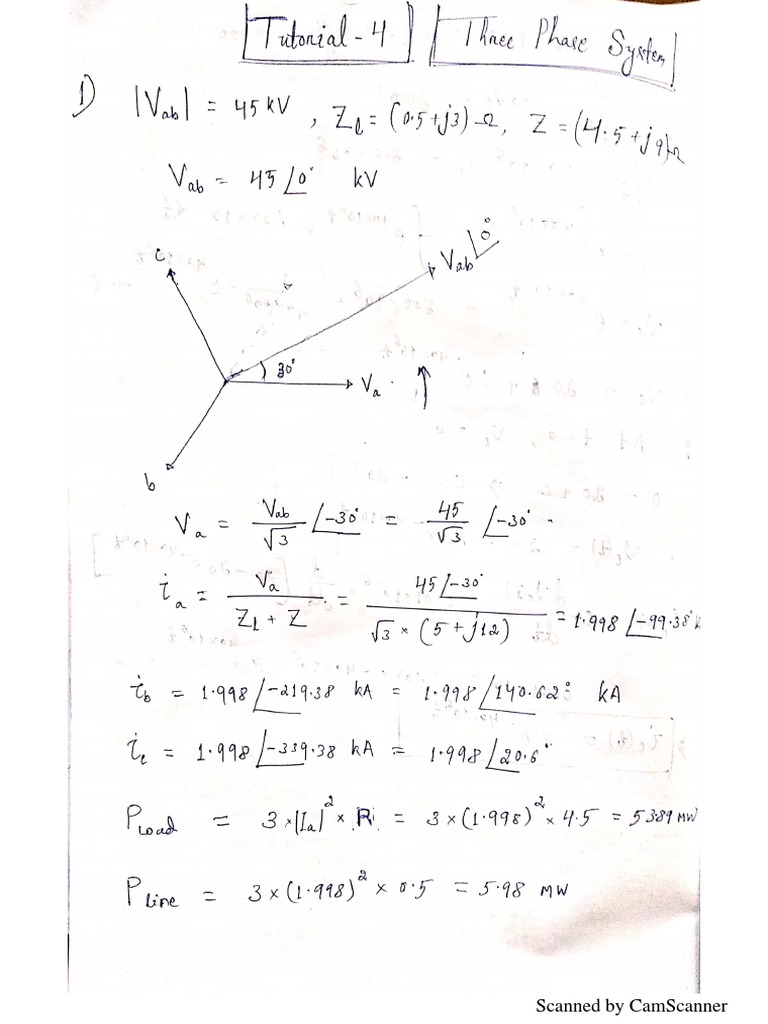 Tutorial-4 Three Phase System
1) |Vab| = 45 kV , Zl = (0.5+j3) Ω, Z = (4.5+j9)Ω
Vab = 45∠0° kV
c
Vab∠0°
30°
Va
b
Va = Vab/√3 ∠-30° = 45/√3 ∠-30°
ia = Va/(Zl + Z) = 45∠-30°/(√3 × (5+j12)) = 1.998 ∠-99.38° k
ib = 1.998∠-219.38 kA = 1.998∠140.62° kA
ic = 1.998∠-339.38 kA = 1.998∠20.6°
PLoad = 3×|Ia|² × R = 3×(1.998)² × 4.5 = 53.89 MW
Pline = 3×(1.998)² × 0.5 = 5.98 MW
Scanned by CamScanner